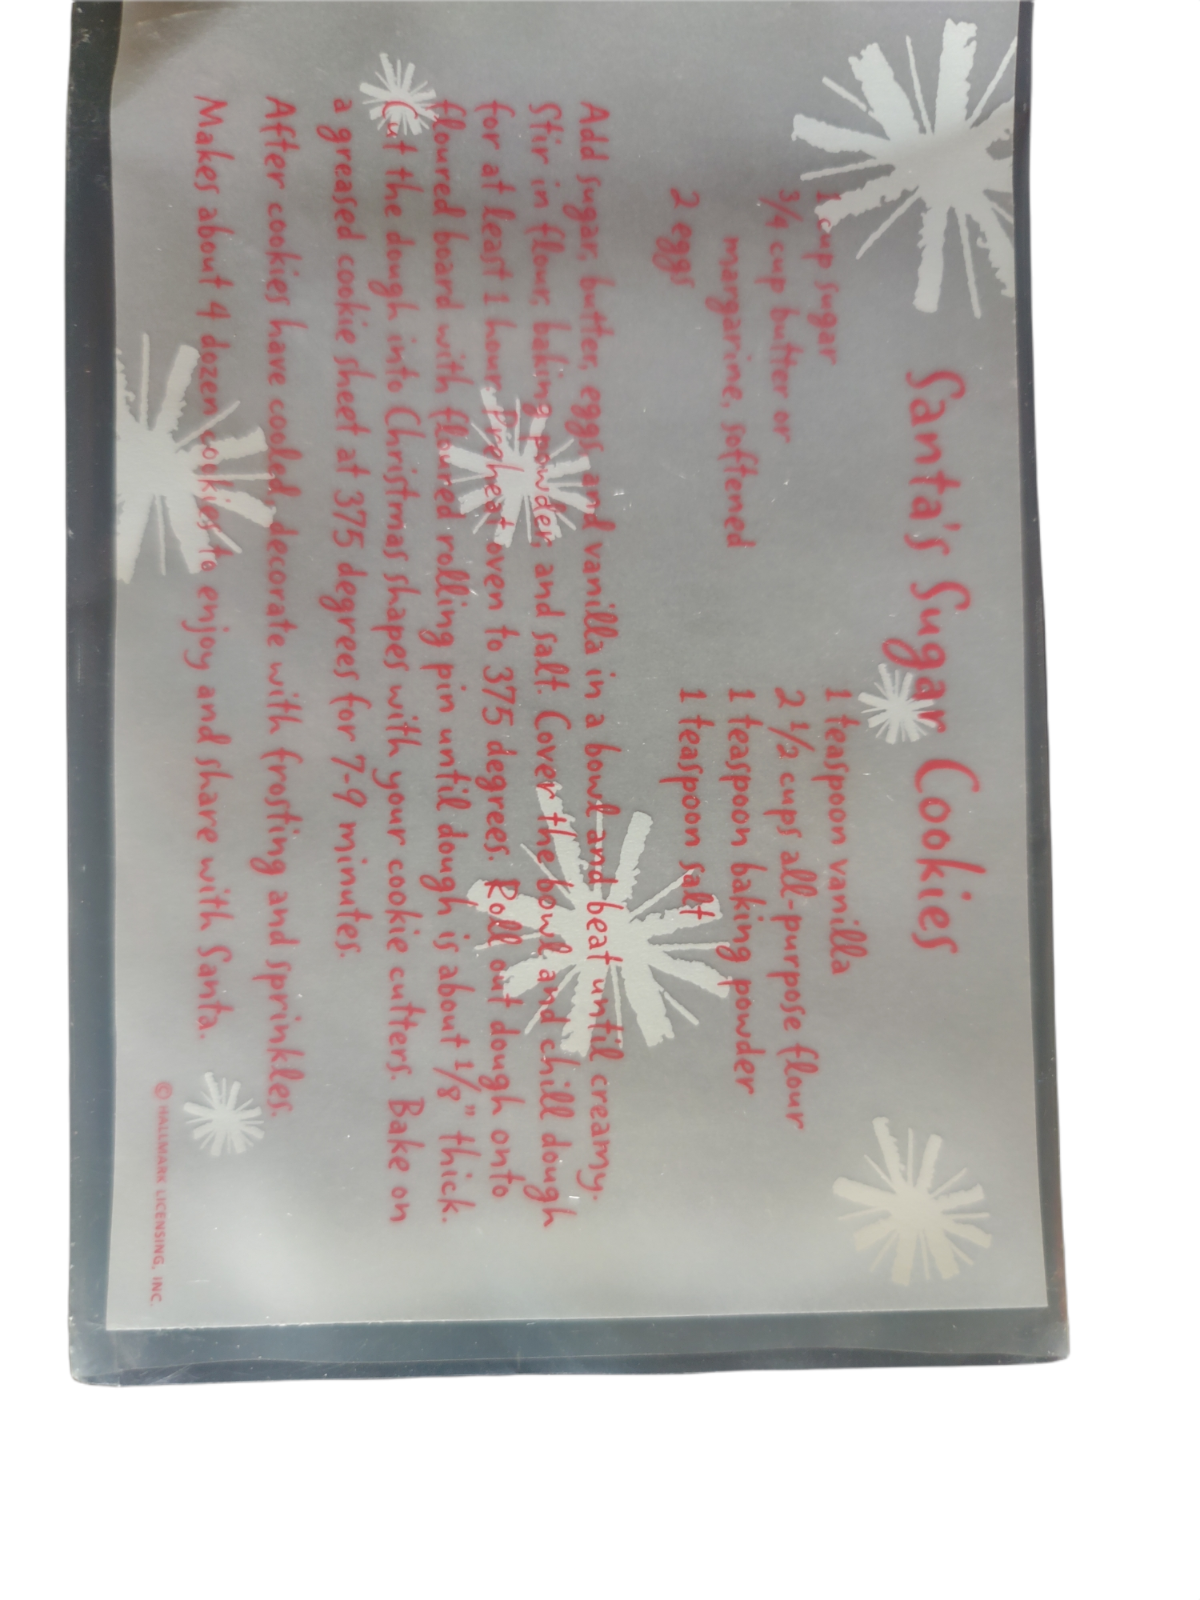 Santa's Sugar Cookies
1 cup sugar
3/4 cup butter or
margarine, softened
2 eggs
1 teaspoon vanilla
2 1/2 cups all-purpose flour
1 teaspoon baking powder
1 teaspoon salt
Add sugar, butter, eggs and vanilla in a bowl and beat until creamy.
Stir in flour, baking powder, and salt. Cover the bowl and chill dough
for at least 1 hour. Preheat oven to 375 degrees. Roll out dough onto
floured board with floured rolling pin until dough is about 1/8" thick.
Cut the dough into Christmas shapes with your cookie cutters. Bake on
a greased cookie sheet at 375 degrees for 7-9 minutes.
After cookies have cooled, decorate with frosting and sprinkles.
Makes about 4 dozen cookies to enjoy and share with Santa.
© HALLMARK LICENSING, INC.